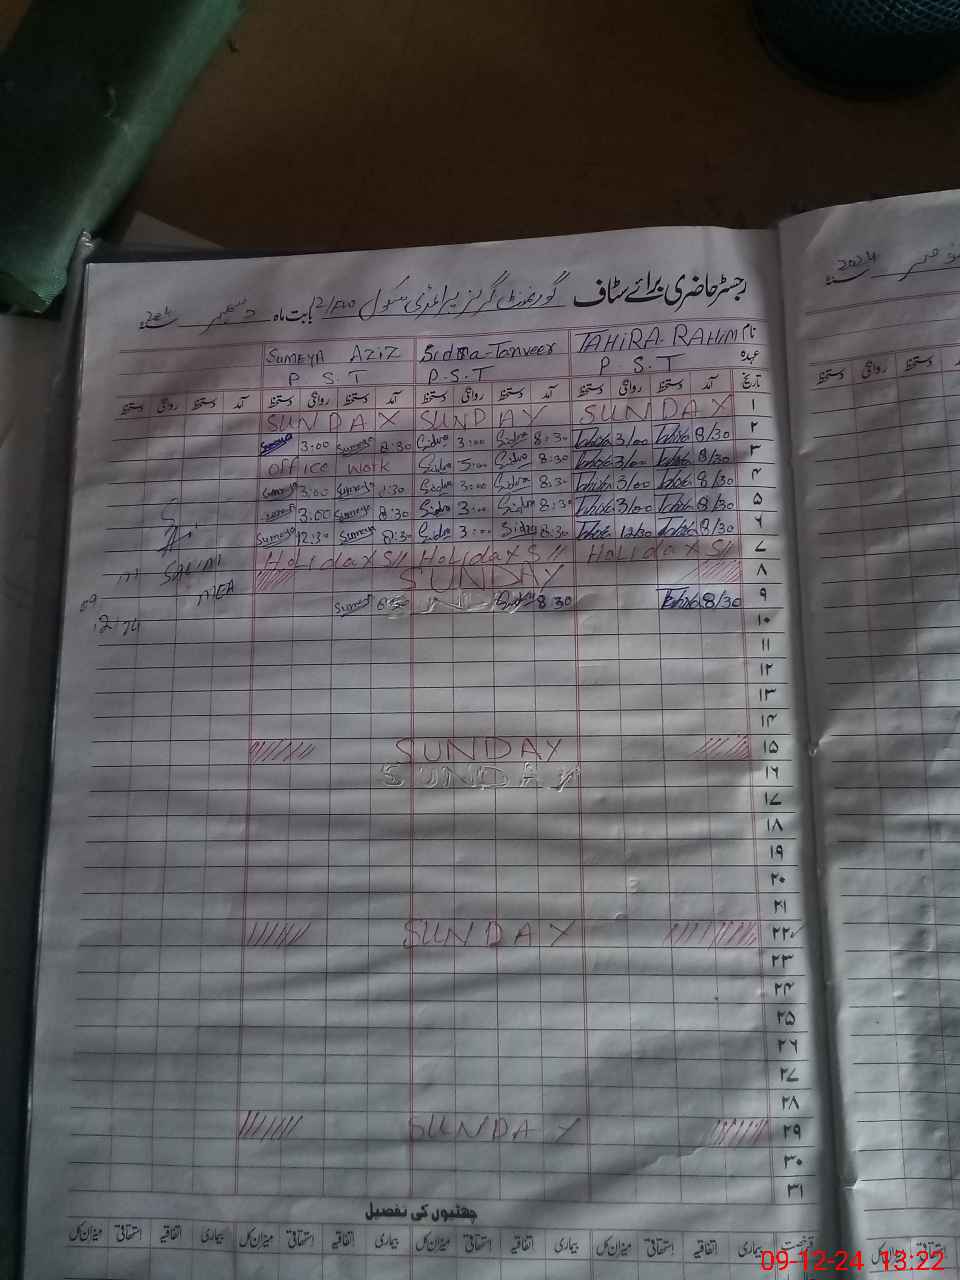 رجسٹر حاضری برائے سٹاف گورنمنٹ گرلز پرائمری سکول بابت ماہ دسمبر
2024
نام TAHiRA-RAHiM Sidra-Tanveer SUMEYA AZIZ
عہدہ P.S.T P.S.T P S.T
تاریخ آمد دستخط روانگی دستخط آمد دستخط روانگی دستخط آمد دستخط روانگی دستخط آمد دستخط روانگی دستخط
۱ SUNDAY SUNDAY SUNDAY
۲ 8/30 3/00 8:30 Sidra 3:00 Sidra 8:30 Sumeya 3:00
۳ 8/30 3/00 8:30 Sidra Sidra office work
۴ 8/30 3/00 8:30 Sidra 3:00 Sidra 8:30 Sumeya 3:00
۵ 8/30 3/00 8:30 Sidra 3:00 Sidra 8:30 Sumeya 3:00
۶ 8/30 12/30 8:30 Sidra Sidra 8:30 Sumeya 12:30 Sumeya
۷ HoLidaY S// HoLidaY S// HoLidaY S//
۸ SUNDAY
۹ 8/30 8 30 Sidra Sumeya
MEA
۱۰
۱۱
۱۲
۱۳
۱۴
۱۵ SUNDAY
۱۶ SUNDAY
۱۷
۱۸
۱۹
۲۰
۲۱
۲۲ SUNDAY
۲۳
۲۴
۲۵
۲۶
۲۷
۲۸
۲۹ SUNDAY
۳۰
۳۱
چھٹیوں کی تفصیل
بیماری اتفاقیہ استحقاقی میزان کل بیماری اتفاقیہ استحقاقی میزان کل بیماری اتفاقیہ استحقاقی میزان کل بیماری اتفاقیہ استحقاقی میزان کل
09-12-24 13:22